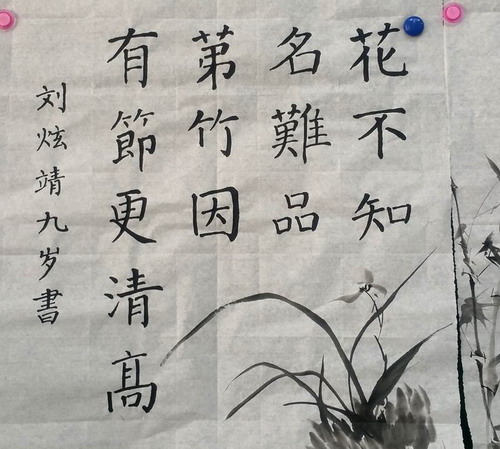 花不知
名難品
苐竹因
有節更清髙
刘炫靖九岁書